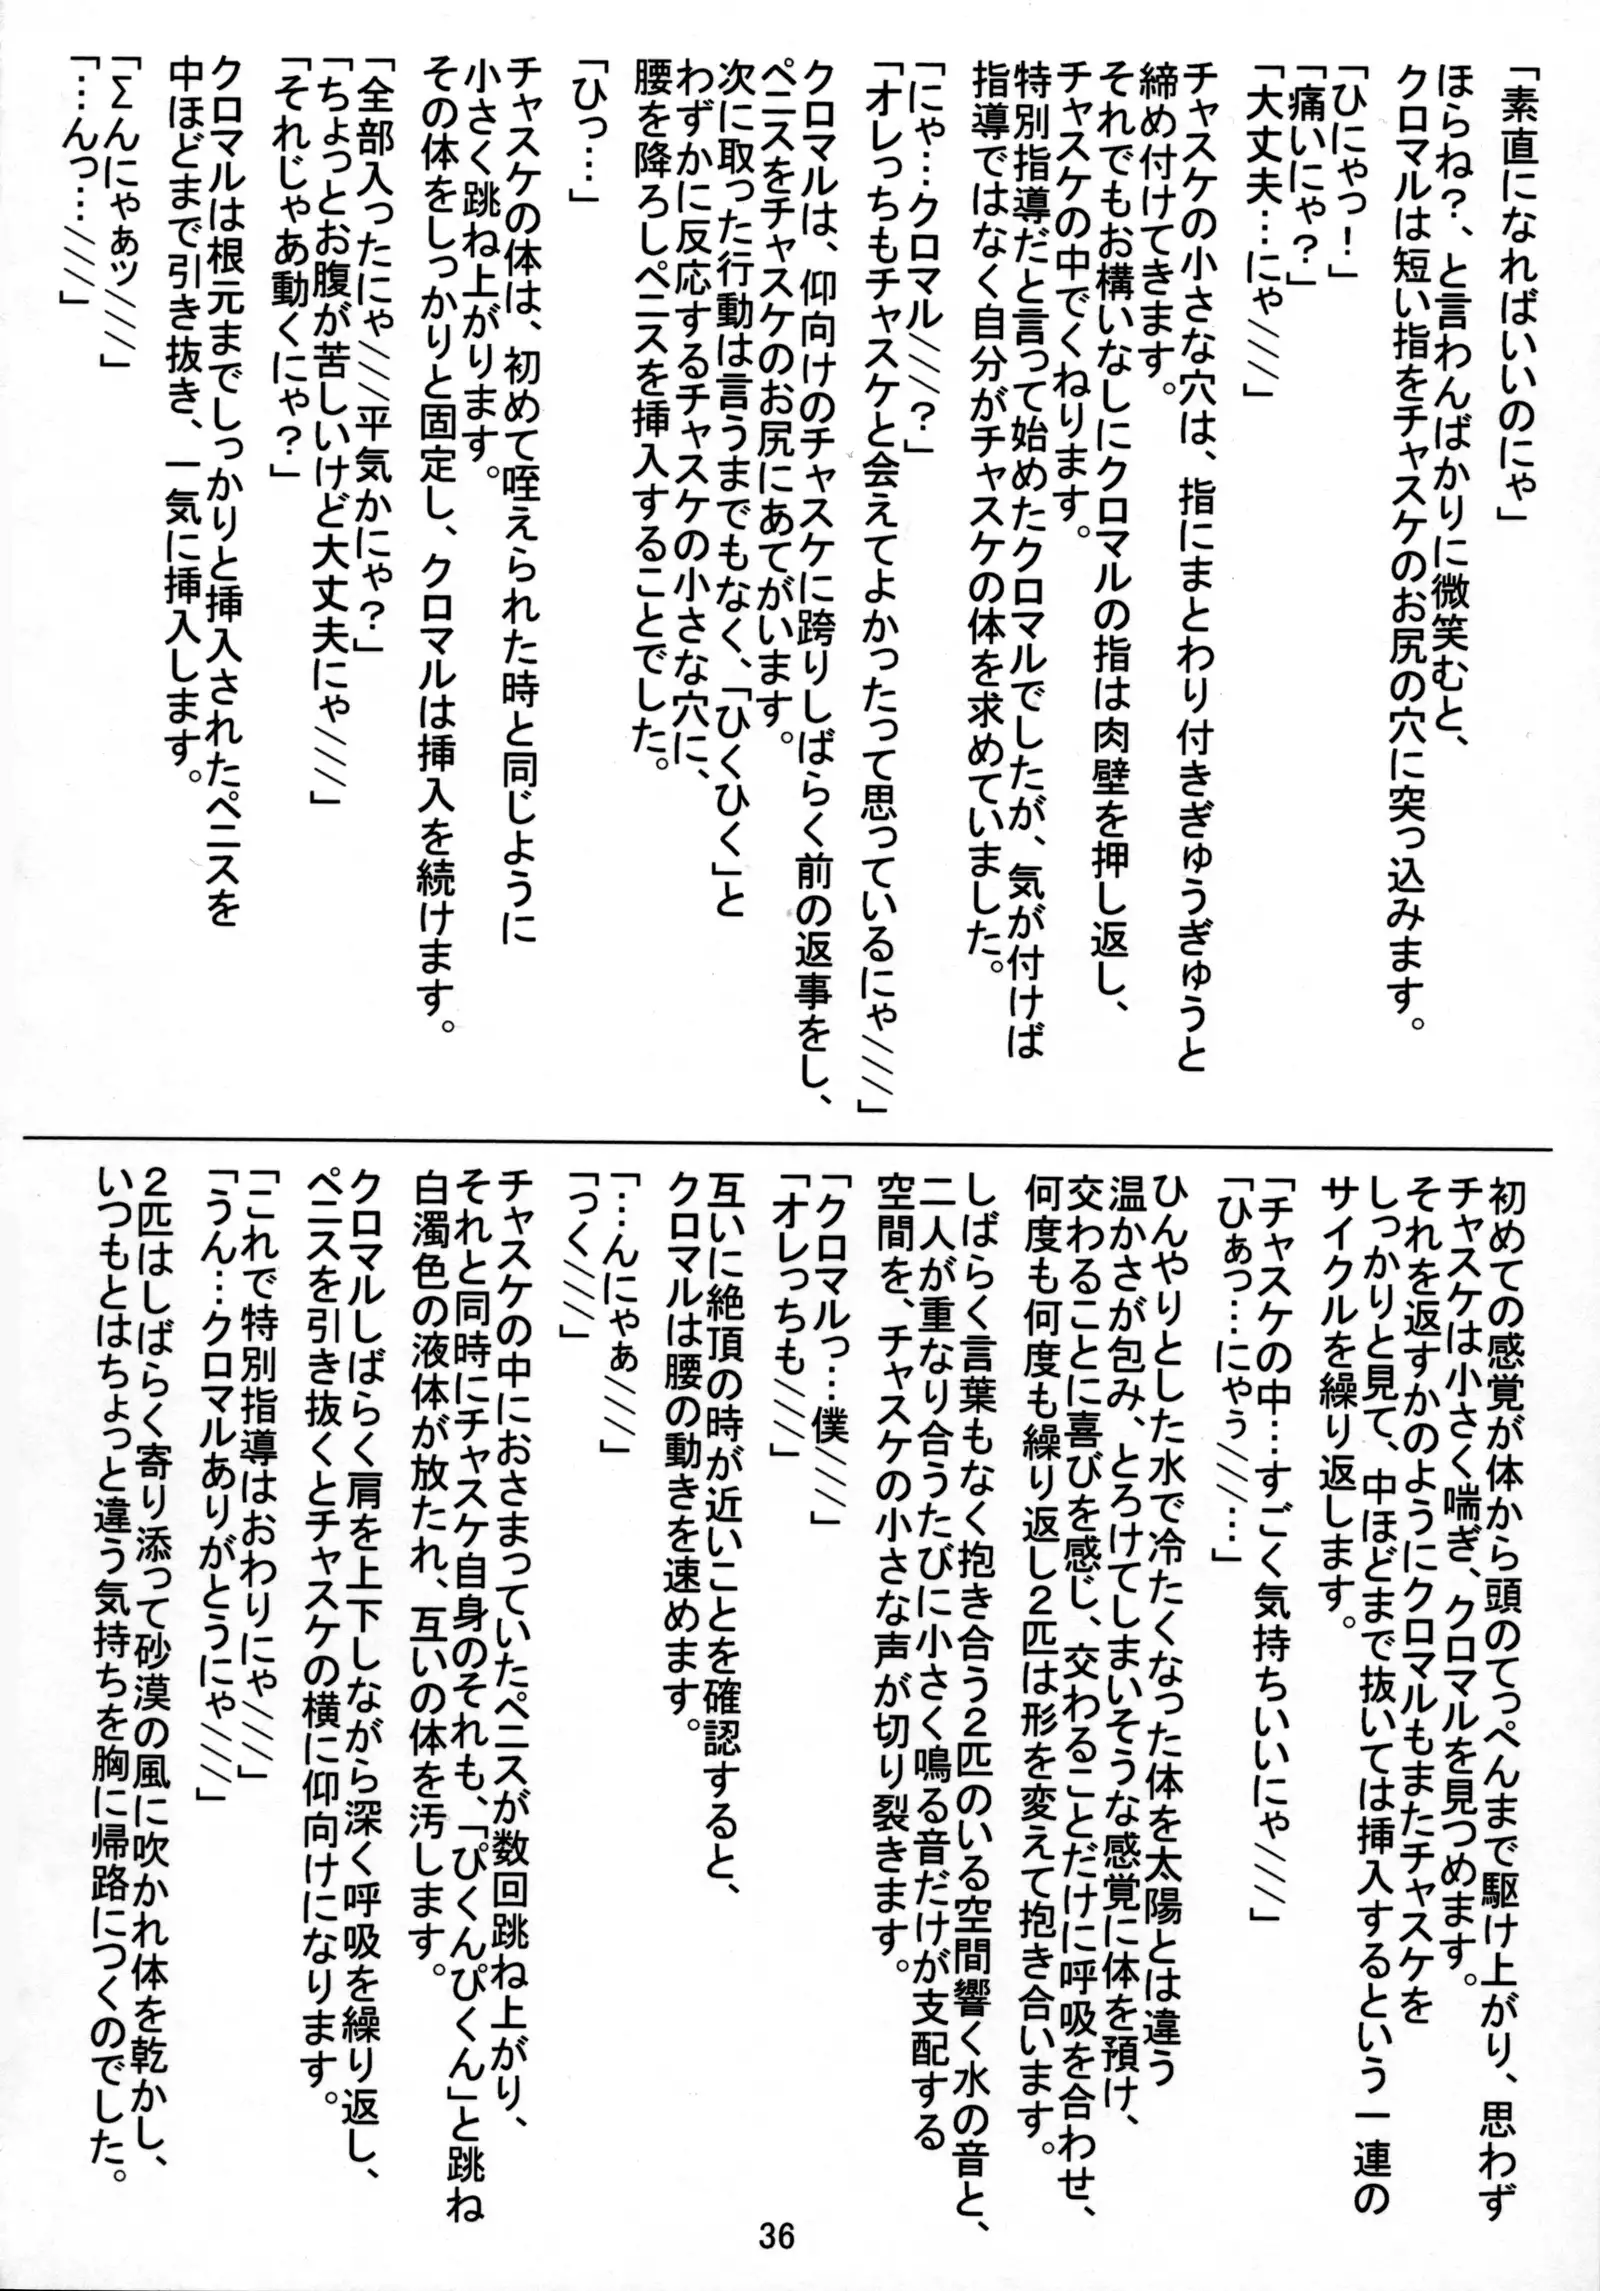 「素直になればいいのにゃ」
ほらね？、と言わんばかりに微笑むと、
クロマルは短い指をチャスケのお尻の穴に突っ込みます。
「ひにゃっ！」
「痛いにゃ？」
「大丈夫…にゃ///」
チャスケの小さな穴は、指にまとわり付きぎゅうぎゅうと
締め付けてきます。
それでもお構いなしにクロマルの指は肉壁を押し返し、
チャスケの中でくねります。
特別指導だと言って始めたクロマルでしたが、気が付けば
指導ではなく自分がチャスケの体を求めていました。
「にゃ…クロマル///？」
「オレっちもチャスケと会えてよかったって思っているにゃ///」
クロマルは、仰向けのチャスケに跨りしばらく前の返事をし、
ペニスをチャスケのお尻にあてがいます。
次に取った行動は言うまでもなく、「ひくひく」と
わずかに反応するチャスケの小さな穴に、
腰を降ろしペニスを挿入することでした。
「ひっ…」
チャスケの体は、初めて咥えられた時と同じように
小さく跳ね上がります。
その体をしっかりと固定し、クロマルは挿入を続けます。
「全部入ったにゃ///平気かにゃ？」
「ちょっとお腹が苦しいけど大丈夫にゃ///」
「それじゃあ動くにゃ？」
クロマルは根元までしっかりと挿入されたペニスを
中ほどまで引き抜き、一気に挿入します。
「Σんにゃぁッ///」
「…んっ…///」
初めての感覚が体から頭のてっぺんまで駆け上がり、思わず
チャスケは小さく喘ぎ、クロマルを見つめます。
それを返すかのようにクロマルもまたチャスケを
しっかりと見て、中ほどまで抜いては挿入するという一連の
サイクルを繰り返します。
「チャスケの中…すごく気持ちいいにゃ///」
「ひぁっ…にゃぅ///…」
ひんやりとした水で冷たくなった体を太陽とは違う
温かさが包み、とろけてしまいそうな感覚に体を預け、
交わることに喜びを感じ、交わることだけに呼吸を合わせ、
何度も何度も繰り返し２匹は形を変えて抱き合います。
しばらく言葉もなく抱き合う２匹のいる空間響く水の音と、
二人が重なり合うたびに小さく鳴る音だけが支配する
空間を、チャスケの小さな声が切り裂きます。
「クロマルっ…僕///」
「オレっちも///」
互いに絶頂の時が近いことを確認すると、
クロマルは腰の動きを速めます。
「…んにゃぁ///」
「っく///」
チャスケの中におさまっていたペニスが数回跳ね上がり、
それと同時にチャスケ自身のそれも、「ぴくんぴくん」と跳ね
白濁色の液体が放たれ、互いの体を汚します。
クロマルしばらく肩を上下しながら深く呼吸を繰り返し、
ペニスを引き抜くとチャスケの横に仰向けになります。
「これで特別指導はおわりにゃ///」
「うん…クロマルありがとうにゃ///」
２匹はしばらく寄り添って砂漠の風に吹かれ体を乾かし、
いつもとはちょっと違う気持ちを胸に帰路につくのでした。
36